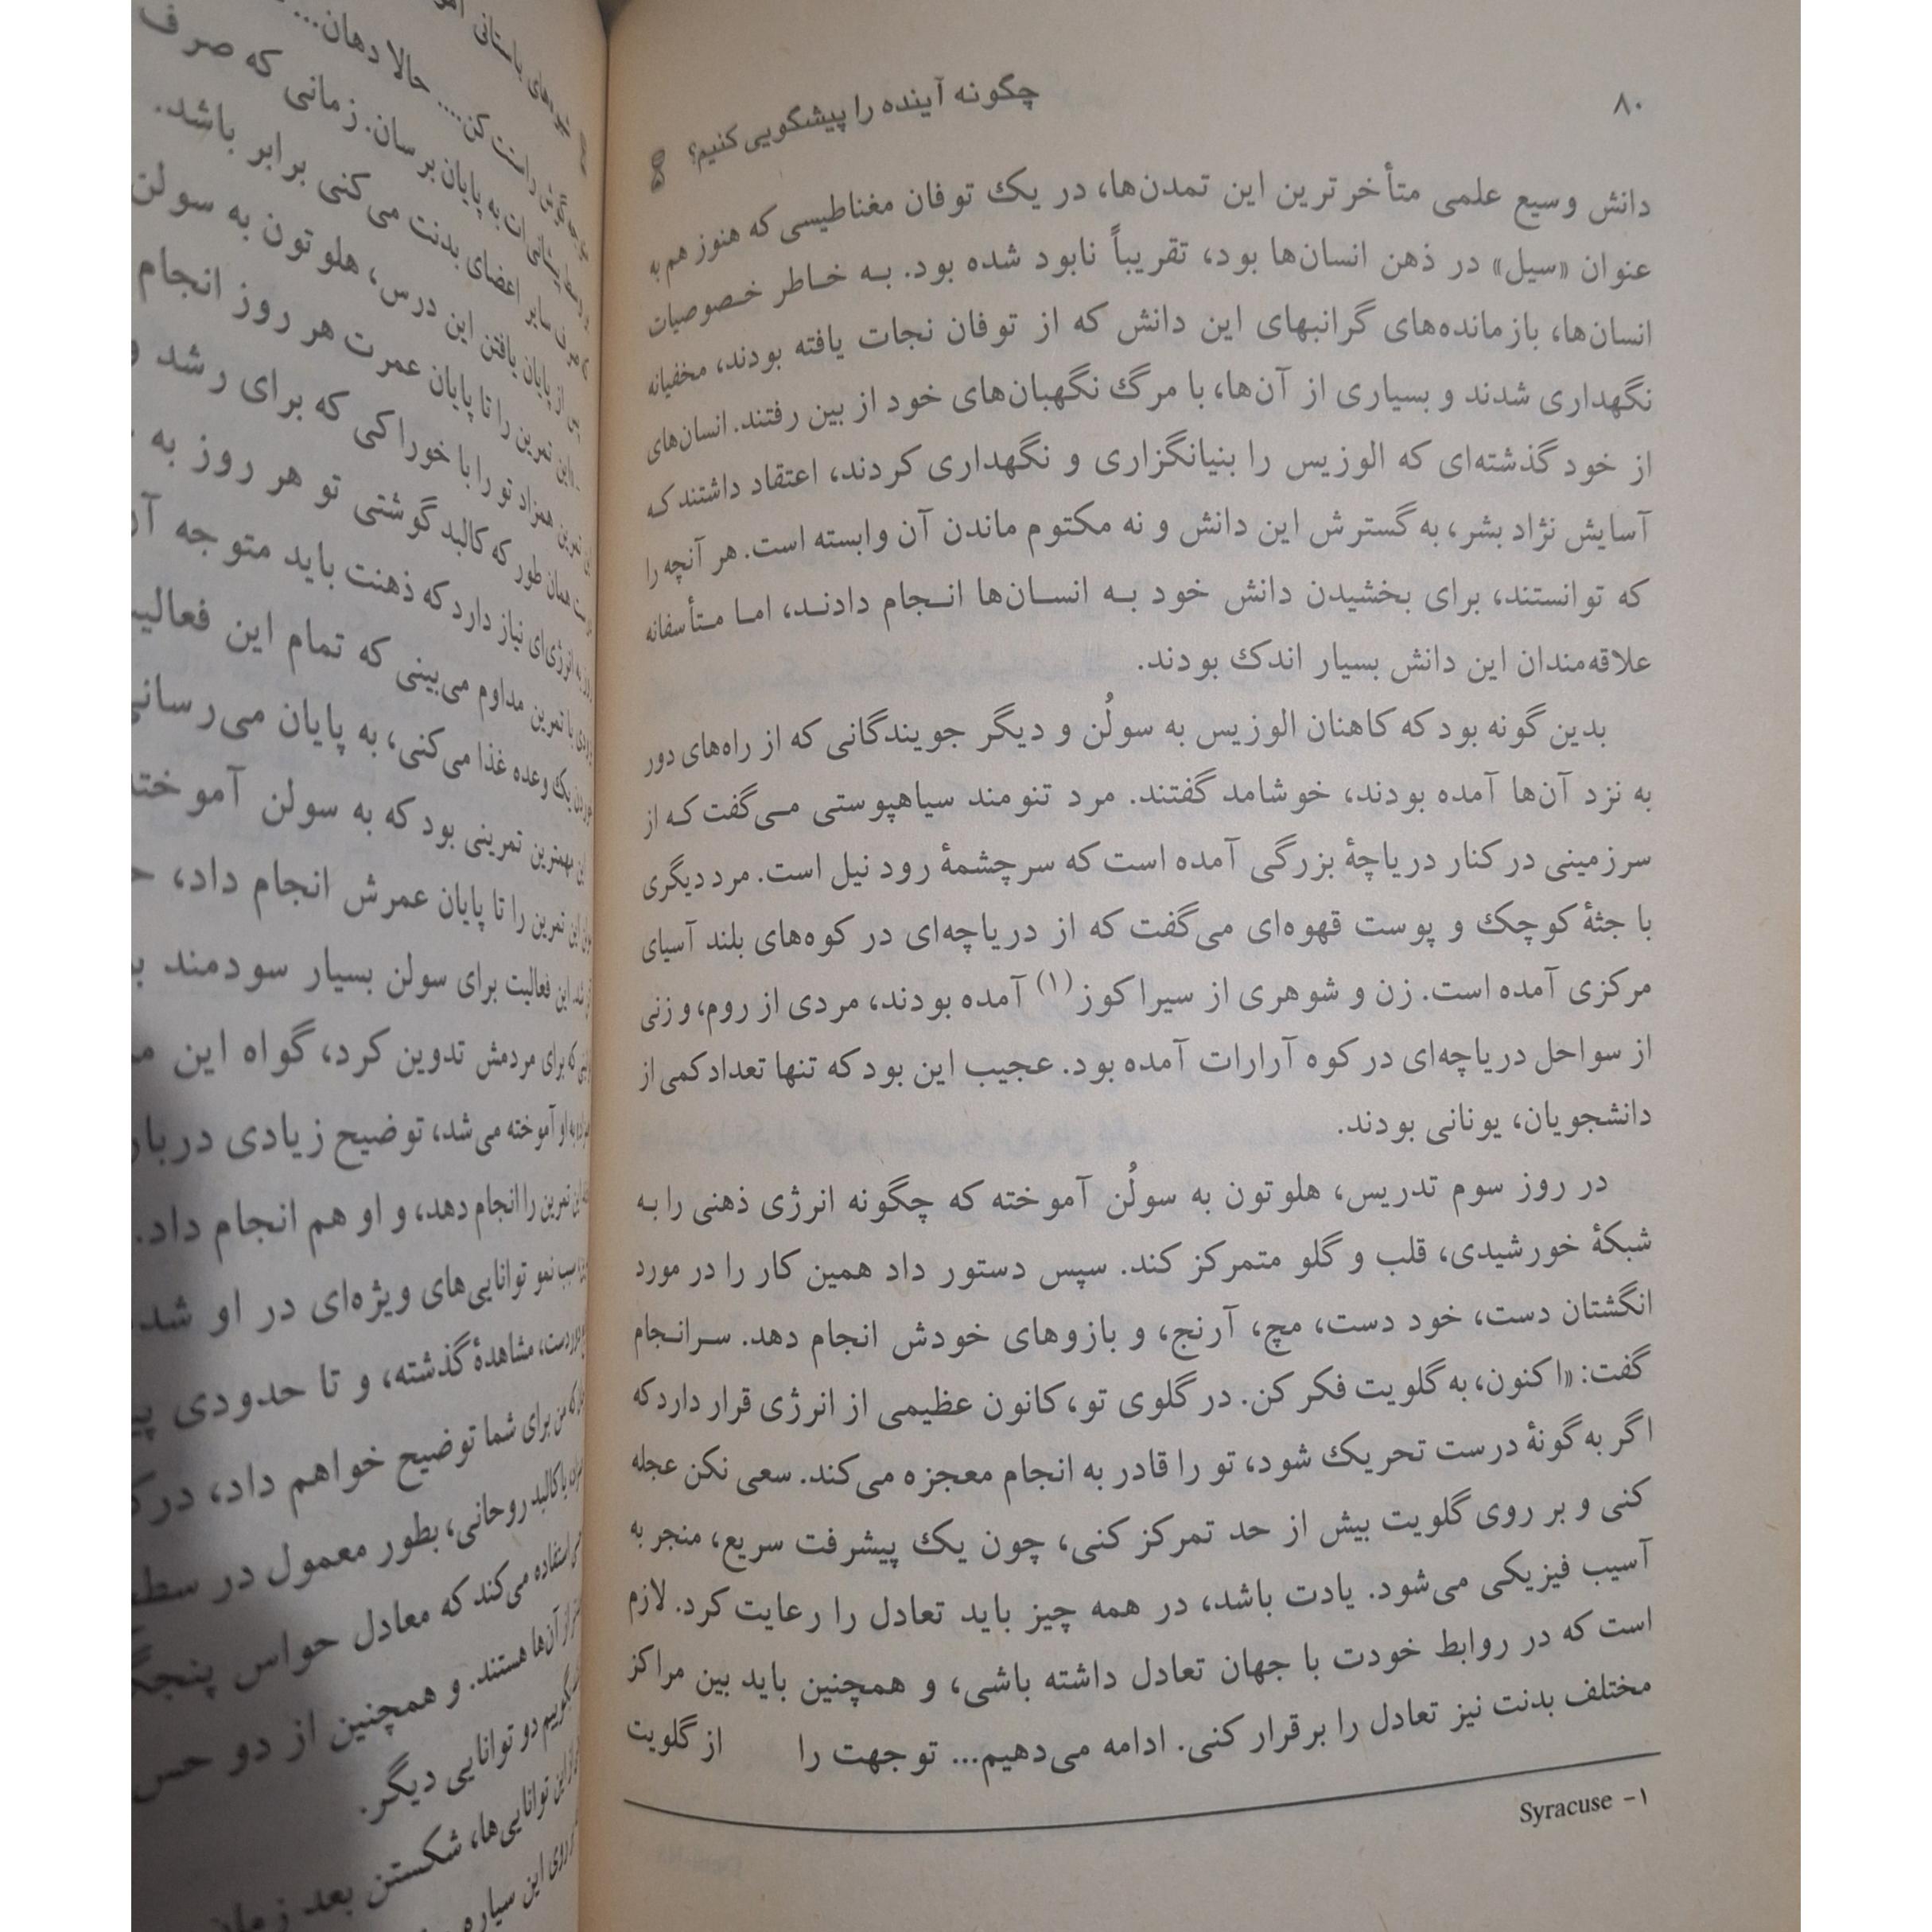 ۸۰
چگونه آینده را پیشگویی کنیم؟
دانش وسیع علمی متأخرترین این تمدن‌ها، در یک توفان مغناطیسی که هنوز هم به
عنوان «سیل» در ذهن انسان‌ها بود، تقریباً نابود شده بود. به خاطر خصوصیات
انسان‌ها، بازمانده‌های گرانبهای این دانش که از توفان نجات یافته بودند، مخفیانه
نگهداری شدند و بسیاری از آن‌ها، با مرگ نگهبان‌های خود از بین رفتند. انسان‌های
از خود گذشته‌ای که الوزیس را بنیانگزاری و نگهداری کردند، اعتقاد داشتند که
آسایش نژاد بشر، به گسترش این دانش و نه مکتوم ماندن آن وابسته است. هر آنچه را
که توانستند، برای بخشیدن دانش خود به انسان‌ها انجام دادند، اما متأسفانه
علاقه‌مندان این دانش بسیار اندک بودند.
بدین گونه بود که کاهنان الوزیس به سولُن و دیگر جویندگانی که از راه‌های دور
به نزد آن‌ها آمده بودند، خوشامد گفتند. مرد تنومند سیاهپوستی می‌گفت که از
سرزمینی در کنار دریاچهٔ بزرگی آمده است که سرچشمهٔ رود نیل است. مرد دیگری
با جثهٔ کوچک و پوست قهوه‌ای می‌گفت که از دریاچه‌ای در کوه‌های بلند آسیای
مرکزی آمده است. زن و شوهری از سیراکوز(۱) آمده بودند، مردی از روم، و زنی
از سواحل دریاچه‌ای در کوه آرارات آمده بود. عجیب این بود که تنها تعداد کمی از
دانشجویان، یونانی بودند.
در روز سوم تدریس، هلوتون به سولُن آموخته که چگونه انرژی ذهنی را به
شبکهٔ خورشیدی، قلب و گلو متمرکز کند. سپس دستور داد همین کار را در مورد
انگشتان دست، خود دست، مچ، آرنج، و بازوهای خودش انجام دهد. سرانجام
گفت: «اکنون، به گلویت فکر کن. در گلوی تو، کانون عظیمی از انرژی قرار دارد که
اگر به گونهٔ درست تحریک شود، تو را قادر به انجام معجزه می‌کند. سعی نکن عجله
کنی و بر روی گلویت بیش از حد تمرکز کنی، چون یک پیشرفت سریع، منجر به
آسیب فیزیکی می‌شود. یادت باشد، در همه چیز باید تعادل را رعایت کرد. لازم
است که در روابط خودت با جهان تعادل داشته باشی، و همچنین باید بین مراکز
مختلف بدنت نیز تعادل را برقرار کنی. ادامه می‌دهیم... توجهت را از گلویت
۱- Syracuse
راست کن.... حالا دهان...
به پایان برسان. زمانی که صرف
سایر اعضای بدنت می‌کنی برابر باشد.
از پایان یافتن این درس، هلوتون به سولن
این تمرین را تا پایان عمرت هر روز انجام
همزاد تو را با خوراکی که برای رشد
همان طور که کالبد گوشتی تو هر روز به
انرژی‌ای نیاز دارد که ذهنت باید متوجه
با تمرین مداوم می‌بینی که تمام این
یک وعده غذا می‌کنی، به پایان می‌رسانی
بهترین تمرینی بود که به سولن
این تمرین را تا پایان عمرش انجام داد،
این فعالیت برای سولن بسیار سودمند
که برای مردمش تدوین کرد، گواه این
او آموخته می‌شد، توضیح زیادی
این تمرین را انجام دهد، و او هم انجام داد.
سبب نمو توانایی‌های ویژه‌ای در او شد
مشاهدهٔ گذشته، و تا حدودی
که من برای شما توضیح خواهم داد،
با کالبد روحانی، بطور معمول در
استفاده می‌کند که معادل حواس
از آن‌ها هستند. و همچنین از دو حس
بگوییم دو توانایی دیگر.
از این توانایی‌ها، شکستن بعد زمان
روی این سیاره